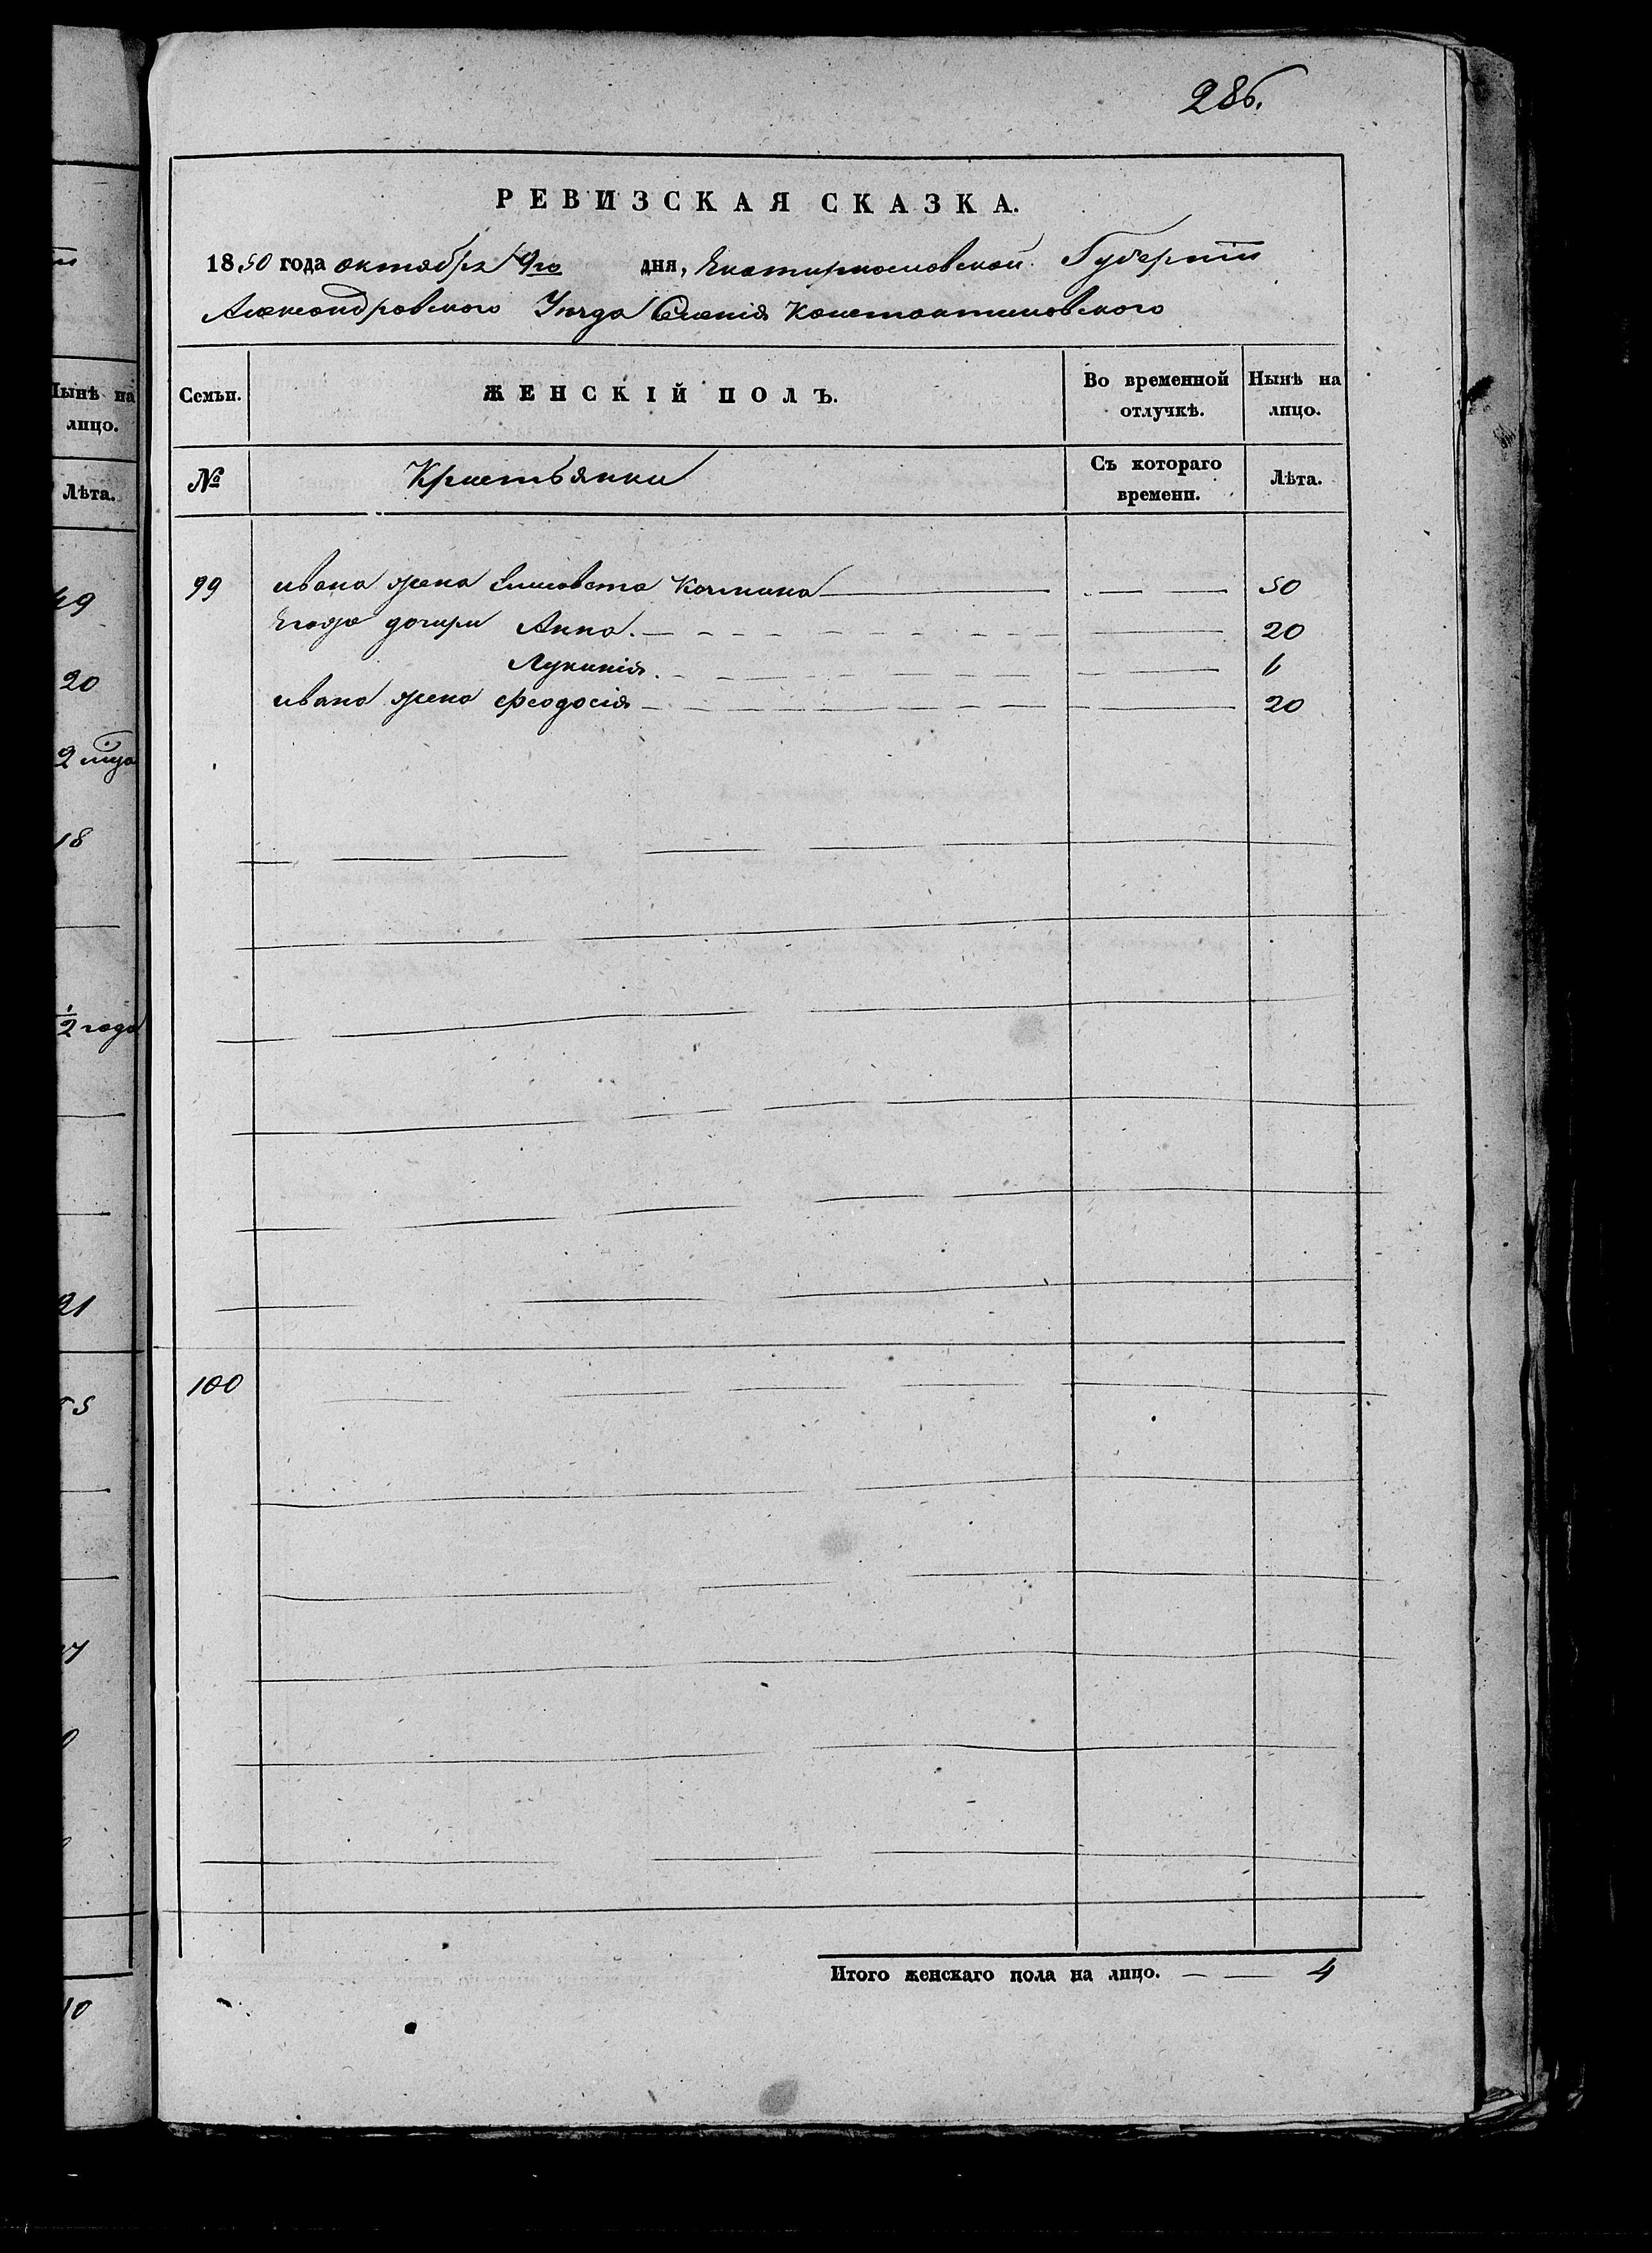 286.
РЕВИЗСКАЯ СКАЗКА.
1850 года октября 9го дня, Екатиринославской Губернiи
Александровского Уезда Селенiя Константиновского
Семьи. ЖЕНСКІЙ ПОЛЪ. Во временной отлучкѣ. Нынѣ на лицо.
№ Кристьянки Съ котораго времени. Лѣта.
99 ивана жена Елисавета Козмина 50
Его же дочири Анна. 20
Лукикія. 6
ивана жена Феодосія 20
100
Итого женскаго пола на лицо. 4
Нынѣ на
лицо.
Лѣта.
49
20
2 м͠ца
18
½ года
21
55
10